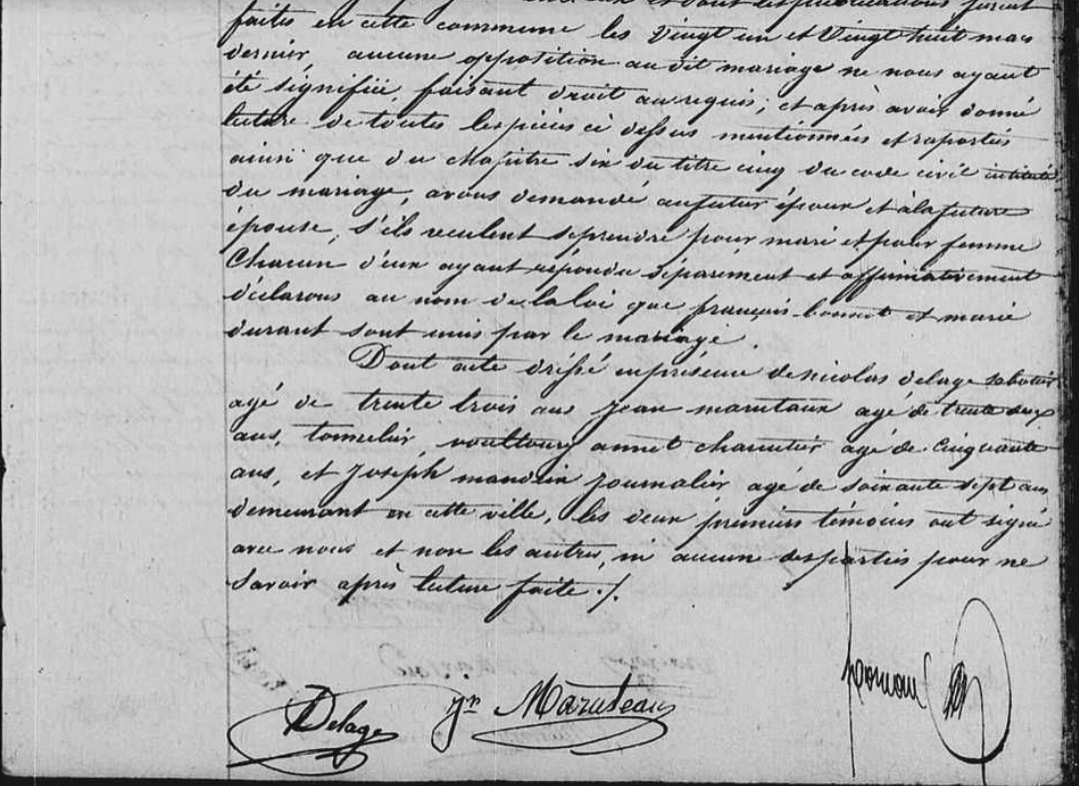 et dont les publications furent
faites en cette commune les vingt un et vingt huit mai
dernier, aucune opposition au dit mariage ne nous ayant
été signifiée, faisant droit au requis; et après avoir donné
lecture de toutes les pièces ci dessus mentionnées et raportés
ainsi que du chapitre six du titre cinq du code civil intitulé
du mariage, avons demandé au futur époux et à la future
épouse, s'ils veulent se prendre pour mari et pour femme
Chacun d'eux ayant répondu séparément et affirmativement
déclarons au nom de la loi que françois bonnet et marie
durant sont unis par le mariage.
Dont acte dréssé en présence de nicolas delage sabotier
agé de trente trois ans jean maruteaux agé de trente deux
ans, tonnelier, annet charcutier agé de cinquante
ans, et joseph mandin journalier agé de soixante sept ans
demeurant en cette ville, les deux premiers témoins ont signé
avec nous et non les autres, ni aucune des parties pour ne
savoir après lecture faite ./.
Delage Jn Maruteau